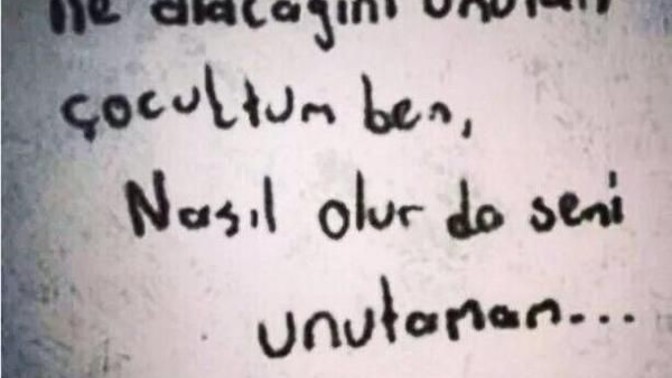 ne alacağını unutan
çocuktum ben,
Nasıl olur da seni
unutamam...